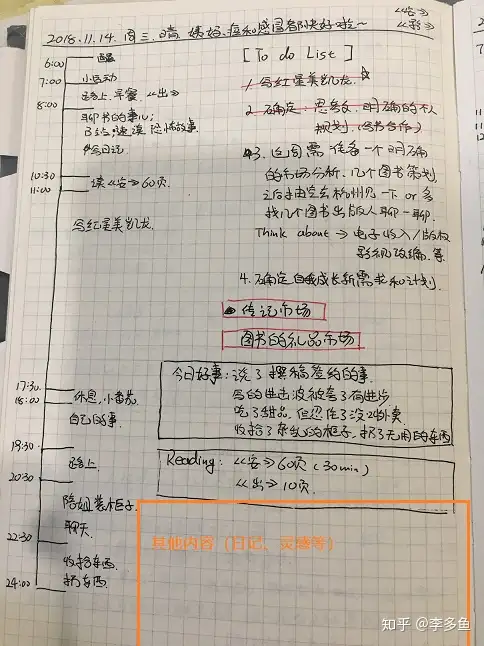 2018.11.14. 周三. 晴. 姨妈、痘和感冒都快好啦~
《客》
《彩》
6:00
7:00
小运动
路上. 早餐. 《出》
8:00
聊书的事儿;
今日记
10:30
11:00
读《客》60页.
写红星美凯龙
17:30
18:00
休息, 小番茄
自己的事.
19:30
路上
20:30
陪姐装柜子.
聊天.
22:30
收拾东西.
扔东西.
24:00
[ To do List ]
1. 写红星美凯龙.
2. 确定: 思考、明确的个人
规划. (写书合作)
3. 这周需准备一个明确
的市场分析. 几个图书策划
之后去杭州见一下 or 多
找几个图书出版人聊一聊.
Think about → 电子收入/版权
影视改编. 等
4. 确定自我成长新需求和计划.
传记市场
图书的礼品市场
今日好事: 说了撰稿签约的事.
写的被夸了有进步
吃了甜品, 但忍住了没吃外卖.
收拾了杂乱的柜子, 扔了无用的东西
Reading: 《客》60页 (30min)
《出》10页.
其他内容(日记、灵感等)
知乎 @李多鱼